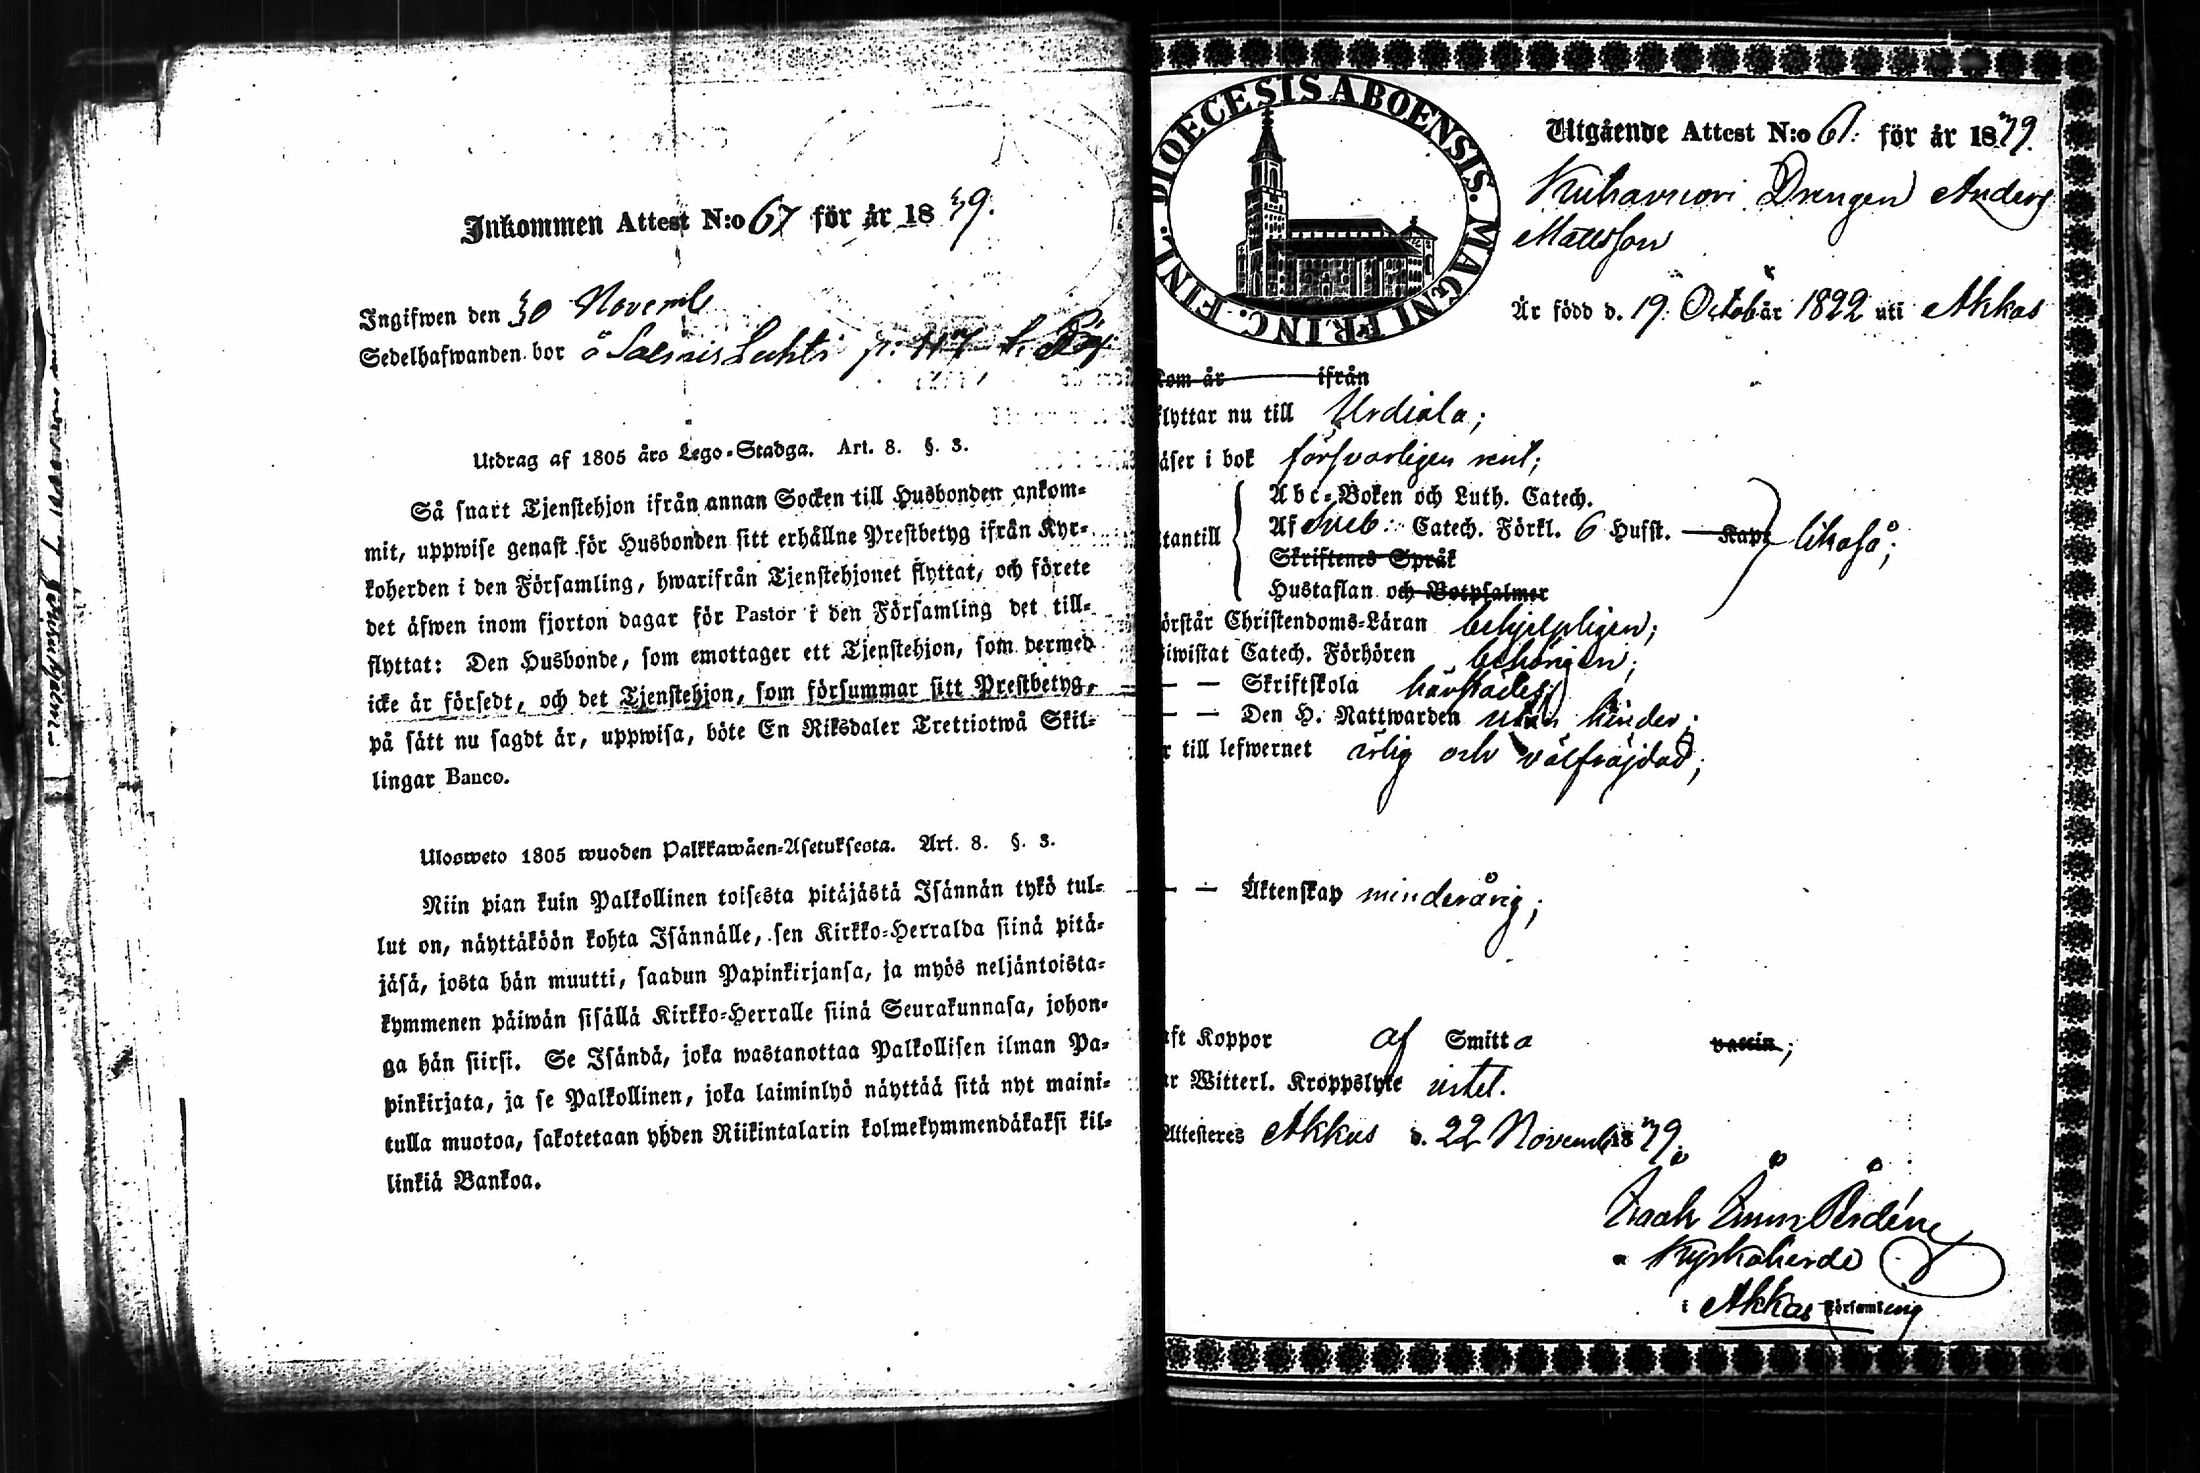 Inkommen Attest N:o 67 för år 1839.
Ingifwen den 30 Novemb
Sedelhafwanden bor
Utdrag af 1805 års Lego-Stadga. Art. 8. §. 3.
Så snart Tjenstehjon ifrån annan Socken till Husbonden ankom-
mit, uppwise genast för Husbonden sitt erhållne Prestbetyg ifrån Kyr-
koherden i den Församling, hwarifrån Tjenstehjonet flyttat, och förete
det äfwen inom fjorton dagar för Pastor i den Församling det till-
flyttat: Den Husbonde, som emottager ett Tjenstehjon, som dermed
icke är försedt, och det Tjenstehjon, som försummar sitt Prestbetyg,
på sätt nu sagdt är, uppwisa, böte En Riksdaler Trettiotwå Skil-
lingar Banco.
Ulosweto 1805 wuoden Palkkawäen-Asetuksesta. Art. 8. §. 3.
Niin pian kuin Palkollinen toisesta pitäjästä Isännän tykö tul-
lut on, näyttäköön kohta Isännälle, sen Kirkko-Herralda siinä pitä-
jäsä, josta hän muutti, saadun Papinkirjansa, ja myös neljäntoista-
kymmenen päiwän sisällä Kirkko-Herralle siinä Seurakunnasa, johon-
ga hän siirsi. Se Isändä, joka wastanottaa Palkollisen ilman Pa-
pinkirjata, ja se Palkollinen, joka laiminlyö näyttää sitä nyt maini-
tulla muotoa, sakotetaan yhden Riikintalarin kolmekymmendäkaksi kil-
linkiä Bankoa.
DIOECESIS ABOENSIS. MAGNI PRINC. FINL.
Utgående Attest N:o 61. för år 1839.
Kuhavuori Drengen Anders
Mattsson
Är född d. 19. Octob är 1822 uti Akkas
Kom år ifrån
flyttar nu till Urdiala;
läser i bok försvarligen rent;
Abc-Boken och Luth. Catech.
Af Sveb: Catech. Förkl. 6 Hufst. — Kap. likaså;
utantill
Skriftenes Språk
Hustaflan och Botpsalmer
förstår Christendoms-Läran behjelpligen;
biwistat Catech. Förhören behörigen;
— — Skriftskola härstädes;
— — Den H. Nattwarden utan hinder;
är till lefwernet ärlig och välfräjdad;
— — Äktenskap minderårig;
haft Koppor af Smitta vaccin;
har Witterl. Kroppslyte intet.
Attesteres Akkas d. 22 Novemb 1839.
Kyrkoherde
i Akkas Församling